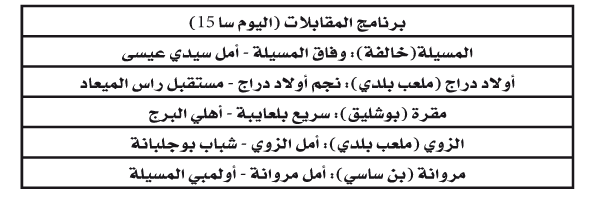 برنامج المقابلات (اليوم سا 15)
المسيلة (خالفة): وفاق المسيلة - أمل سيدي عيسى
أولاد دراج (ملعب بلدي): نجم أولاد دراج - مستقبل راس الميعاد
مقرة (بوشليق): سريع بلعايبة - أهلي البرج
الزوي (ملعب بلدي): أمل الزوي - شباب بوجلبانة
مروانة (بن ساسي): أمل مروانة - أولمبي المسيلة